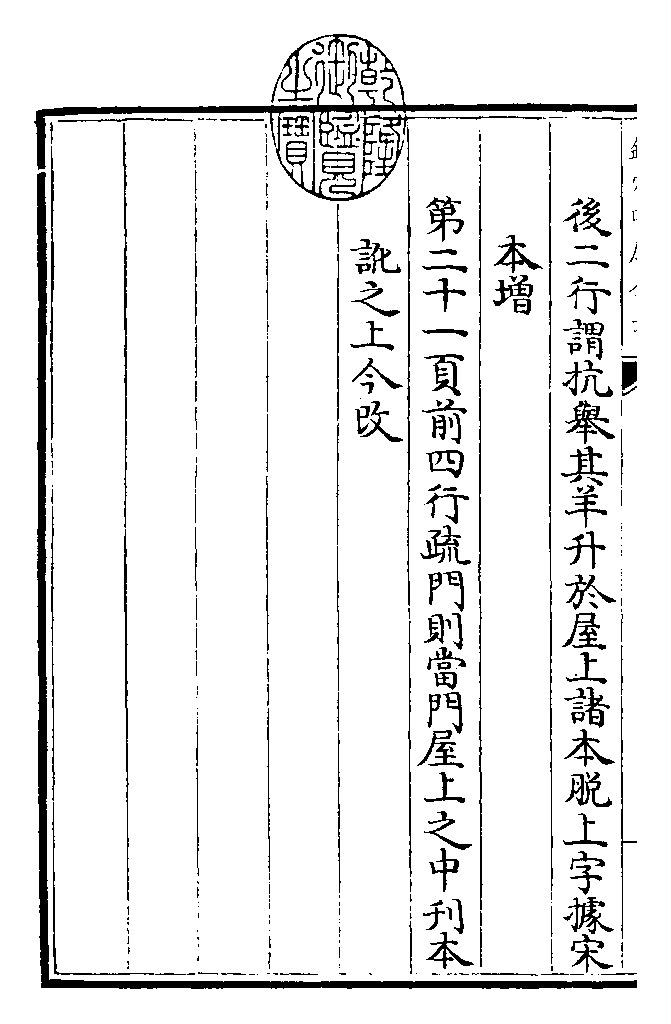 後二行謂抗舉其羊升於屋上諸本脱上字據宋
本增
第二十一頁前四行疏門則當門屋上之中刋本
訛之上今改
乾隆御覽之寶